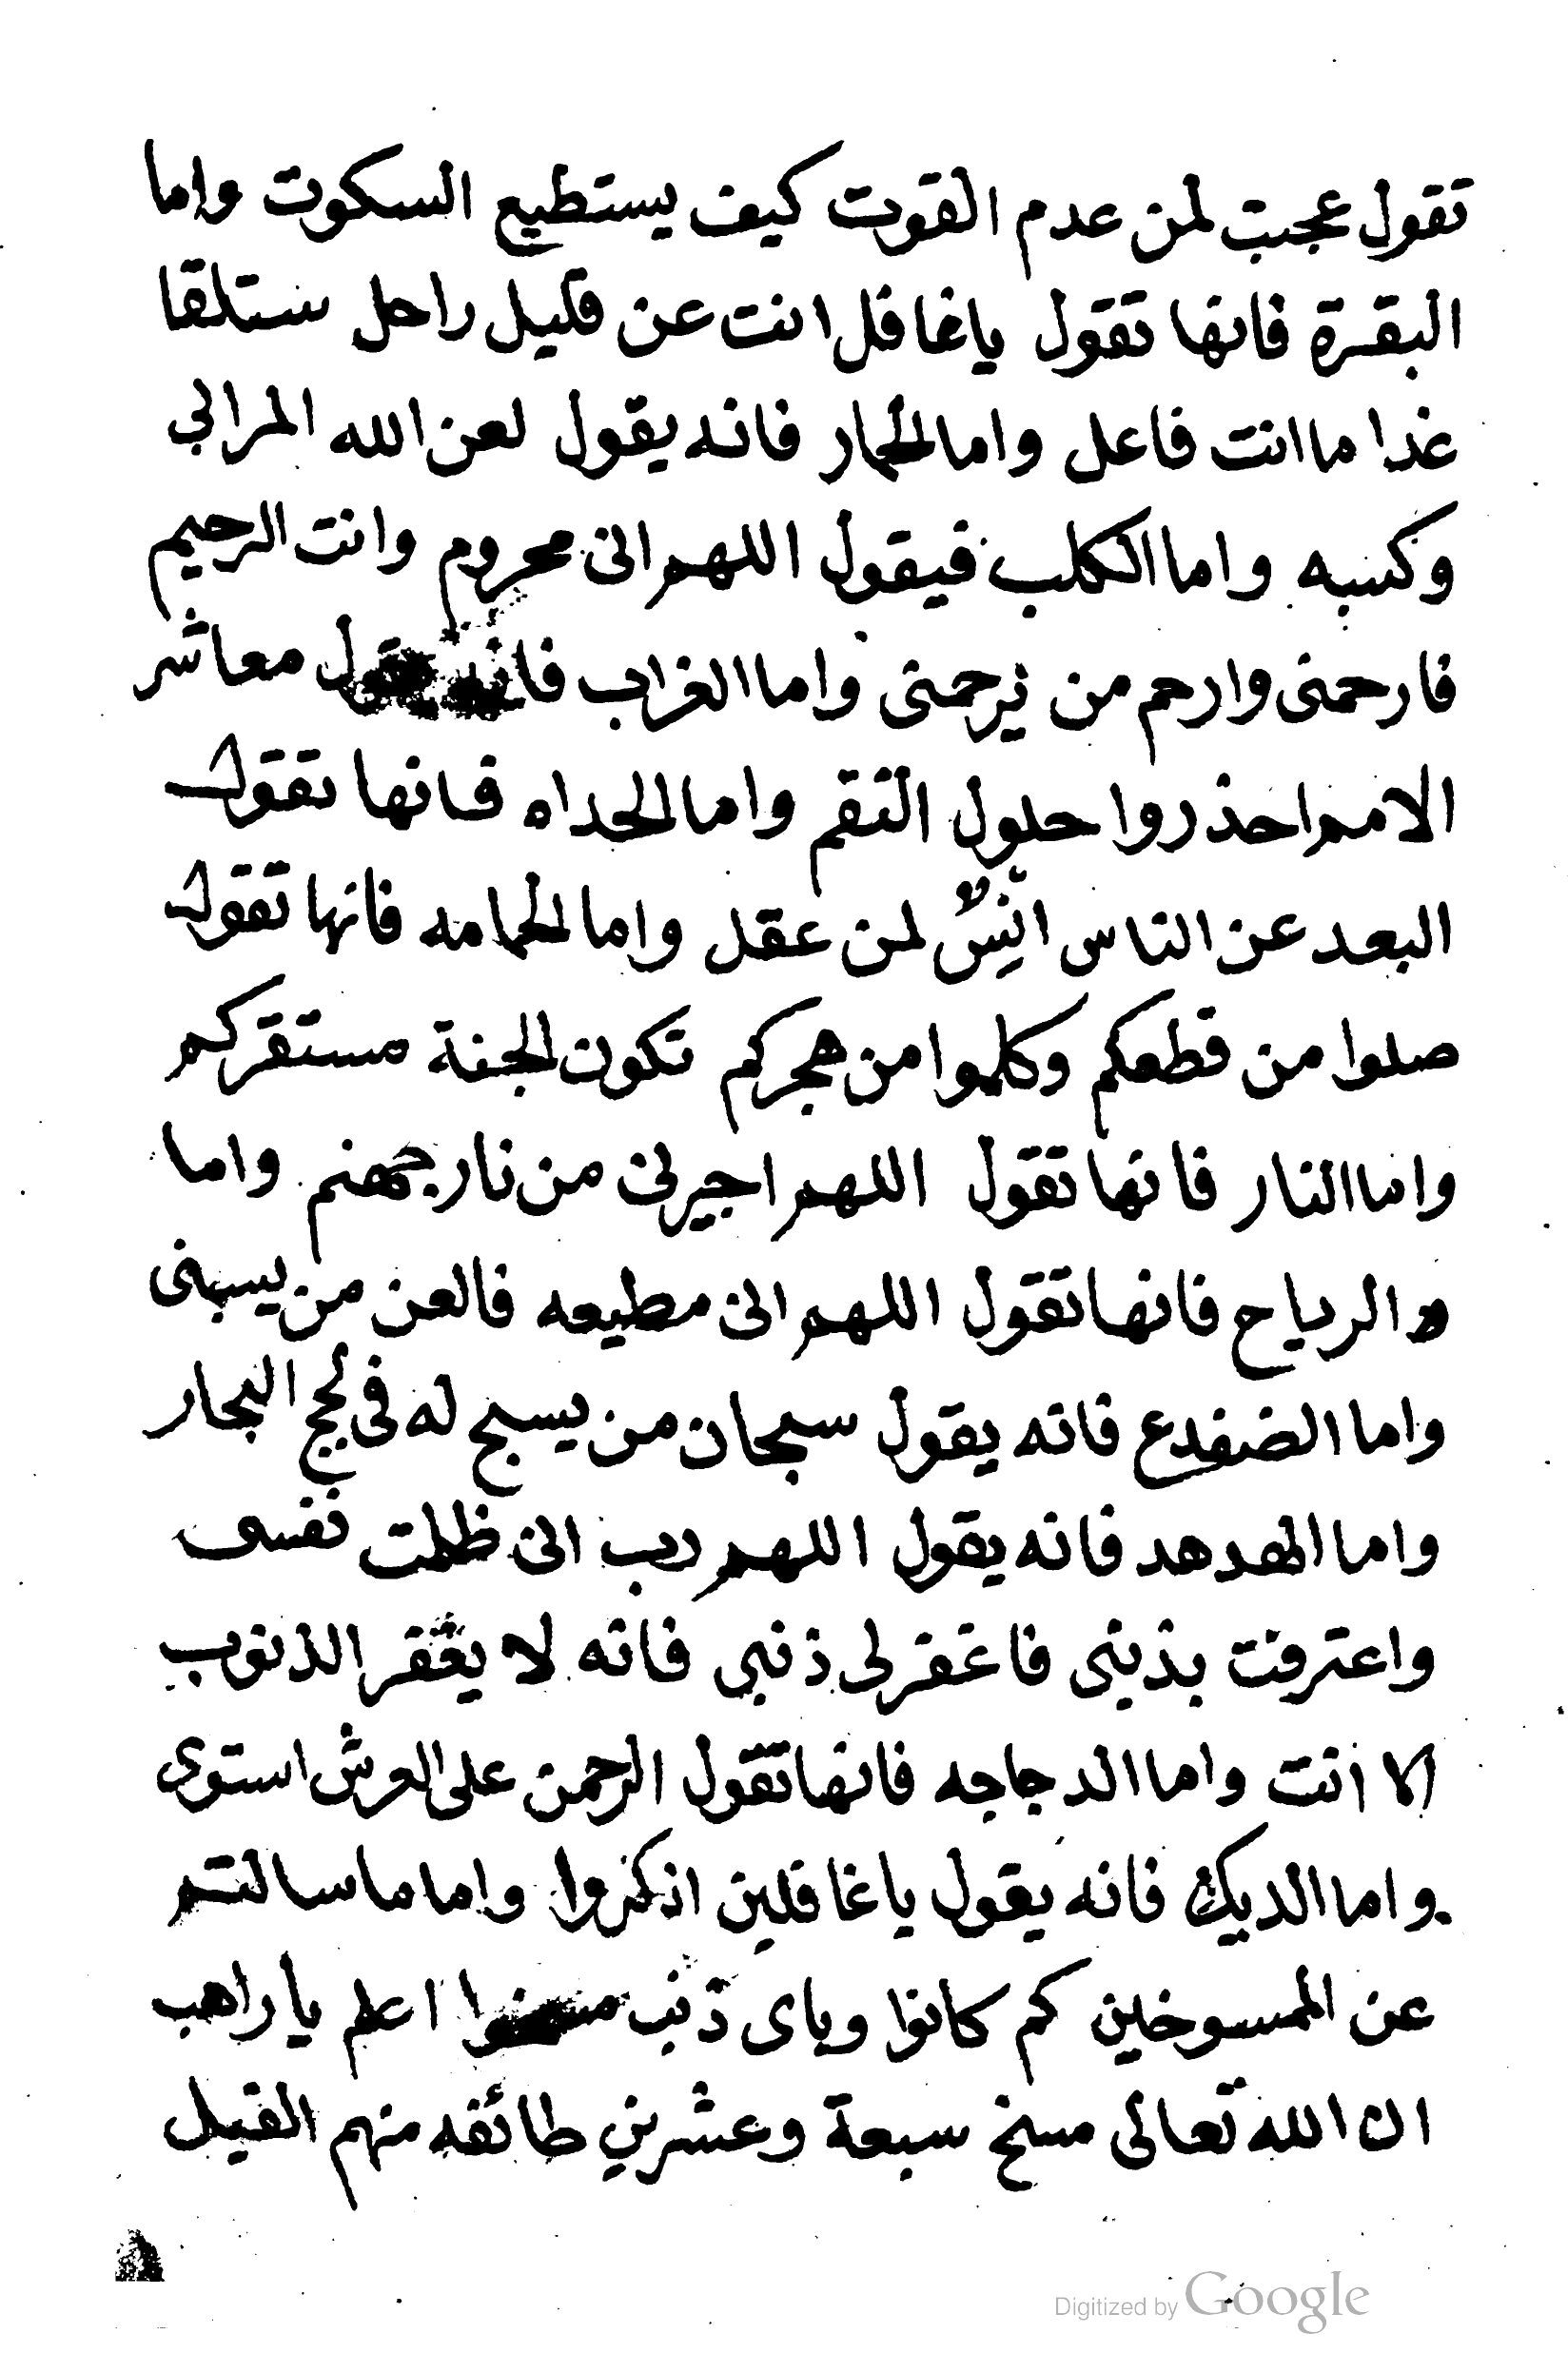 تقول عجبت لمن عدم القوت كيف يستطيع السكوت واما
البقرة فانها تقول ياغافل انت عن قليل راحل ستلقا
غدا ما انت فاعل واما الحمار فانه يقول لعن الله المرابي
وكسبه واما الكلب فيقول اللهم انى محروم وانت الرحيم
فارحمنى وارحم من يرحمنى واما الغراب فانه يقول معاشر
الامم احذروا حلول النقم واما الحداه فانها تقول
البعد عن الناس انيسٌ لمن عقل واما الحمامه فانها تقول
صلوا من قطعكم وكلموا من هجركم تكون الجنة مستقركم
واما النار فانها تقول اللهم اجيرنى من نار جهنم واما
الرياح فانها تقول اللهم انى مطيعه فالعن من يسبنى
واما الضفدع فانه يقول سبحان من يسبح له فى لجج البحار
واما الهدهد فانه يقول اللهم رب انى ظلمت نفسى
واعترفت بذنبى فاغفرلى ذنبى فانه لا يغفر الذنوب
الا انت واما الدجاجه فانها تقول الرحمن على العرش استوى
واما الديك فانه يقول ياغافلين اذكروا واما ما سالتم
عن الممسوخين كم كانوا وباى ذنب مسخوا اعلم يا راهب
ان الله تعالى مسخ سبعة وعشرين طائفه منهم الفيل
Digitized by Google